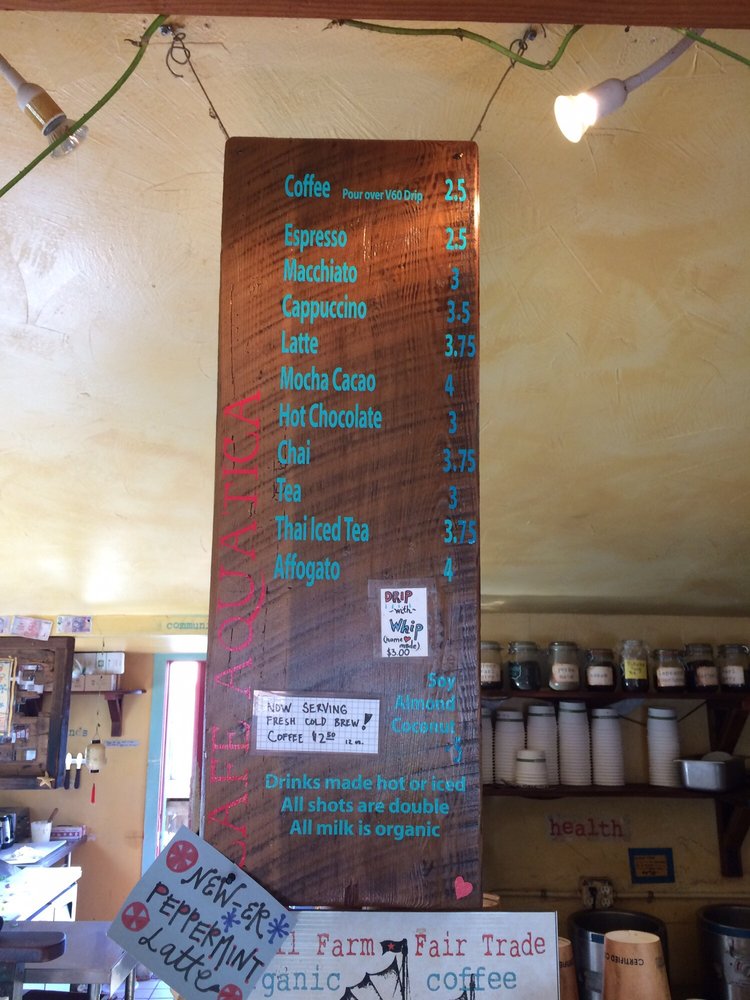 Coffee Pour over V60 Drip 2.5
Espresso 2.5
Macchiato 3
Cappuccino 3.5
Latte 3.75
Mocha Cacao 4
Hot Chocolate 3
Chai 3.75
Tea 3
Thai Iced Tea 3.75
Affogato 4
CAFE AQUATICA
DRIP
-with-
Whip
(home
made)
$3.00
NOW SERVING
FRESH COLD BREW!
COFFEE $2.50 12 oz.
Soy
Almond
Coconut
Drinks made hot or iced
All shots are double
All milk is organic
NEW-ER
PEPPERMINT
Latte
Farm Fair Trade
ganic coffee
communi
health
CERTIFIED